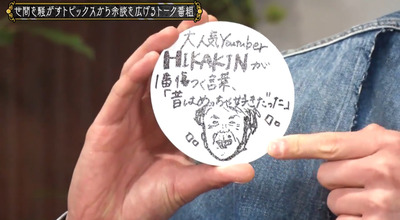 世間を騒がすトピックスから余談を広げるトーク番組
大人気Youtuber
HIKAKINが
1番傷つく言葉、
「昔はめっちゃ好きだった」